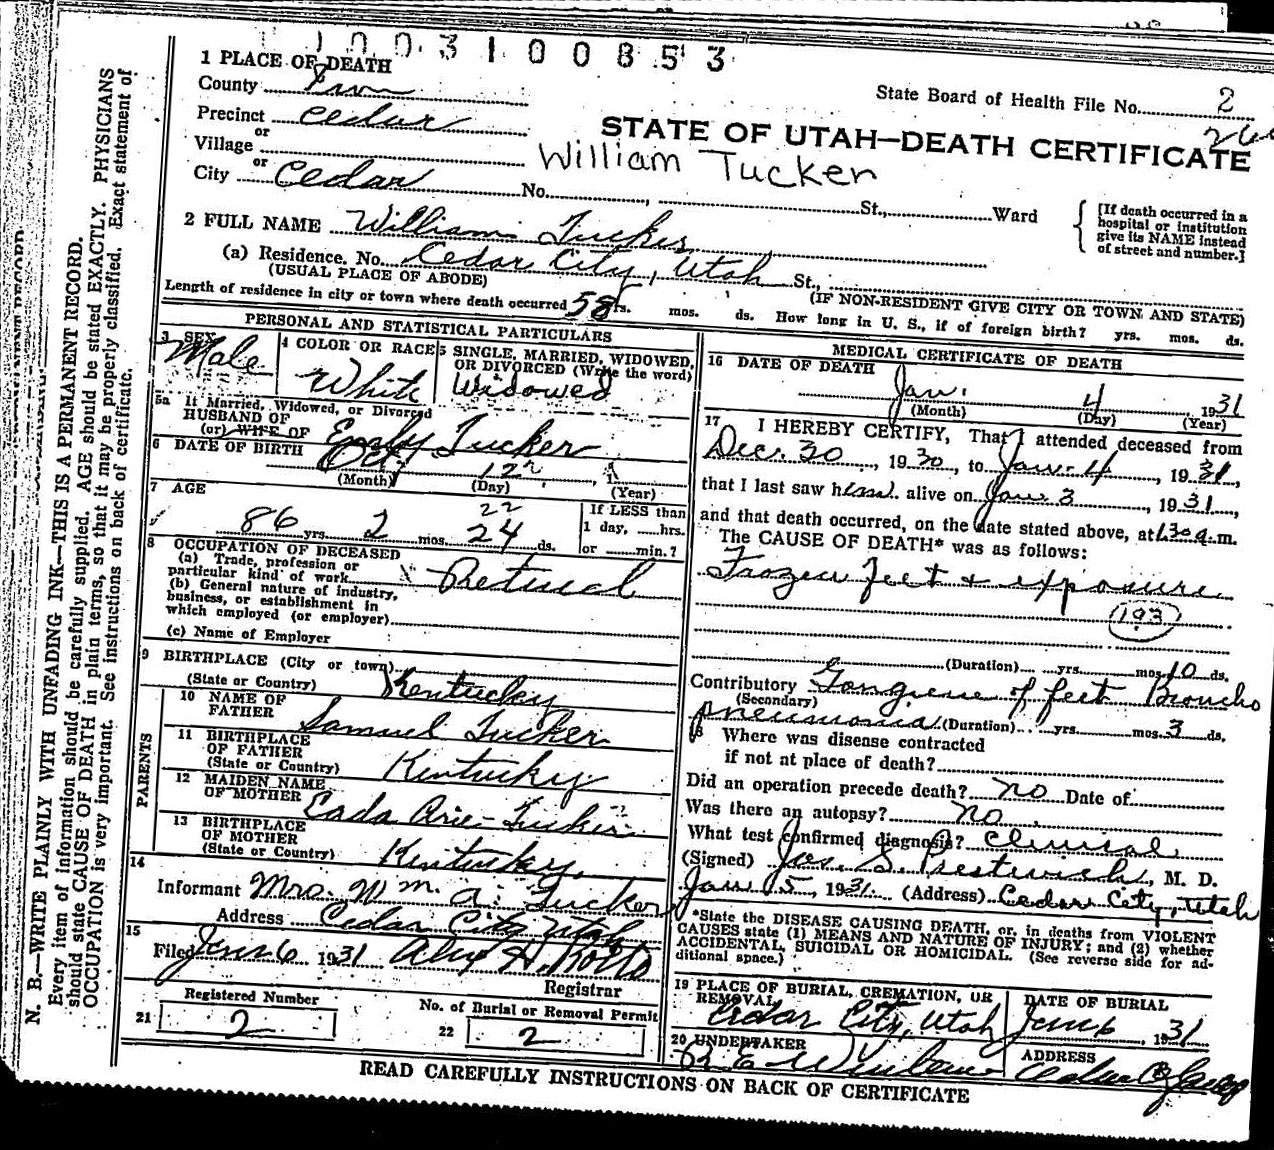 1003100853
1 PLACE OF DEATH
County Iron
State Board of Health File No. 2
Precinct Cedar
or
Village
STATE OF UTAH—DEATH CERTIFICATE
William Tucker
or
City Cedar No. St., Ward
[If death occurred in a
hospital or institution
give its NAME instead
of street and number.]
2 FULL NAME William Tucker
(a) Residence. No. Cedar City, Utah St.,
(USUAL PLACE OF ABODE)
(IF NON-RESIDENT GIVE CITY OR TOWN AND STATE)
Length of residence in city or town where death occurred 58 yrs. mos. ds. How long in U. S., if of foreign birth? yrs. mos. ds.
PERSONAL AND STATISTICAL PARTICULARS
3 SEX
Male
4 COLOR OR RACE
White
5 SINGLE, MARRIED, WIDOWED,
OR DIVORCED (Write the word)
Widowed
5a If Married, Widowed, or Divorced
HUSBAND OF
(or) WIFE OF Emly Tucker
6 DATE OF BIRTH Oct. 12
(Month) (Day) (Year)
7 AGE
22
86 yrs. 2 mos. 24 ds.
If LESS than
1 day, ....hrs.
or ......min.?
8 OCCUPATION OF DECEASED
(a) Trade, profession or
particular kind of work
Retired
(b) General nature of industry,
business, or establishment in
which employed (or employer)
(c) Name of Employer
9 BIRTHPLACE (City or town)
(State or Country) Kentucky
PARENTS
10 NAME OF
FATHER Samuel Tucker
11 BIRTHPLACE
OF FATHER
(State or Country) Kentucky
12 MAIDEN NAME
OF MOTHER Tucker
13 BIRTHPLACE
OF MOTHER
(State or Country) Kentucky.
14
Informant Mrs. Wm. A. Tucker
Address Cedar City Utah
15
Filed Jan 6 1931 Alex H. Rollo
Registrar
21 Registered Number
2
22 No. of Burial or Removal Permit
2
MEDICAL CERTIFICATE OF DEATH
16 DATE OF DEATH
Jan. 4, 1931
(Month) (Day) (Year)
17 I HEREBY CERTIFY, That I attended deceased from
Dec. 30, 1930, to Jan. 4, 1931,
that I last saw him alive on Jan 3, 1931,
and that death occurred, on the date stated above, at 1:30 a.m.
The CAUSE OF DEATH* was as follows:
Frozen feet & exposure
193
(Duration) yrs. mos. 10 ds.
Contributory Gangrene of feet Broncho
(Secondary)
pneumonia (Duration) yrs. mos. 3 ds.
18 Where was disease contracted
if not at place of death?
Did an operation precede death? No Date of
Was there an autopsy? No
What test confirmed diagnosis? Clinical
(Signed) Jos. S. Prestwich, M. D.
Jan 5, 1931. (Address) Cedar City, Utah
*State the DISEASE CAUSING DEATH, or, in deaths from VIOLENT
CAUSES state (1) MEANS AND NATURE OF INJURY; and (2) whether
ACCIDENTAL, SUICIDAL OR HOMICIDAL. (See reverse side for ad-
ditional space.)
19 PLACE OF BURIAL, CREMATION, OR
REMOVAL
Cedar City, Utah
DATE OF BURIAL
Jan 6, 1931
20 UNDERTAKER
ADDRESS
Cedar City
READ CAREFULLY INSTRUCTIONS ON BACK OF CERTIFICATE
N. B.—WRITE PLAINLY WITH UNFADING INK—THIS IS A PERMANENT RECORD.
Every item of information should be carefully supplied. AGE should be stated EXACTLY. PHYSICIANS
should state CAUSE OF DEATH in plain terms, so that it may be properly classified. Exact statement of
OCCUPATION is very important. See instructions on back of certificate.